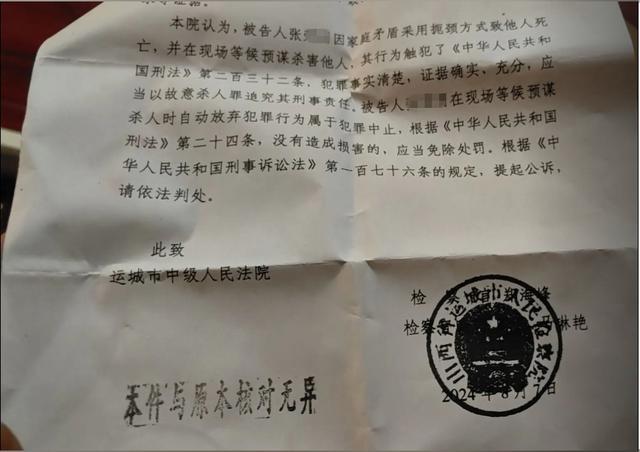 本院认为，被告人张 因家庭矛盾采用扼颈方式致他人死
亡，并在现场等候预谋杀害他人，其行为触犯了《中华人民共和
国刑法》第二百三十二条，犯罪事实清楚，证据确实、充分，应
当以故意杀人罪追究其刑事责任。被告人 在现场等候预谋
杀人时自动放弃犯罪行为属于犯罪中止，根据《中华人民共和国
刑法》第二十四条，没有造成损害的，应当免除处罚。根据《中
华人民共和国刑事诉讼法》第一百七十六条的规定，提起公诉，
请依法判处。
此致
运城市中级人民法院
检 郑海峰
检察 琳艳
山西省运城市人民检察院
2024年8月7日
本件与原本核对无异